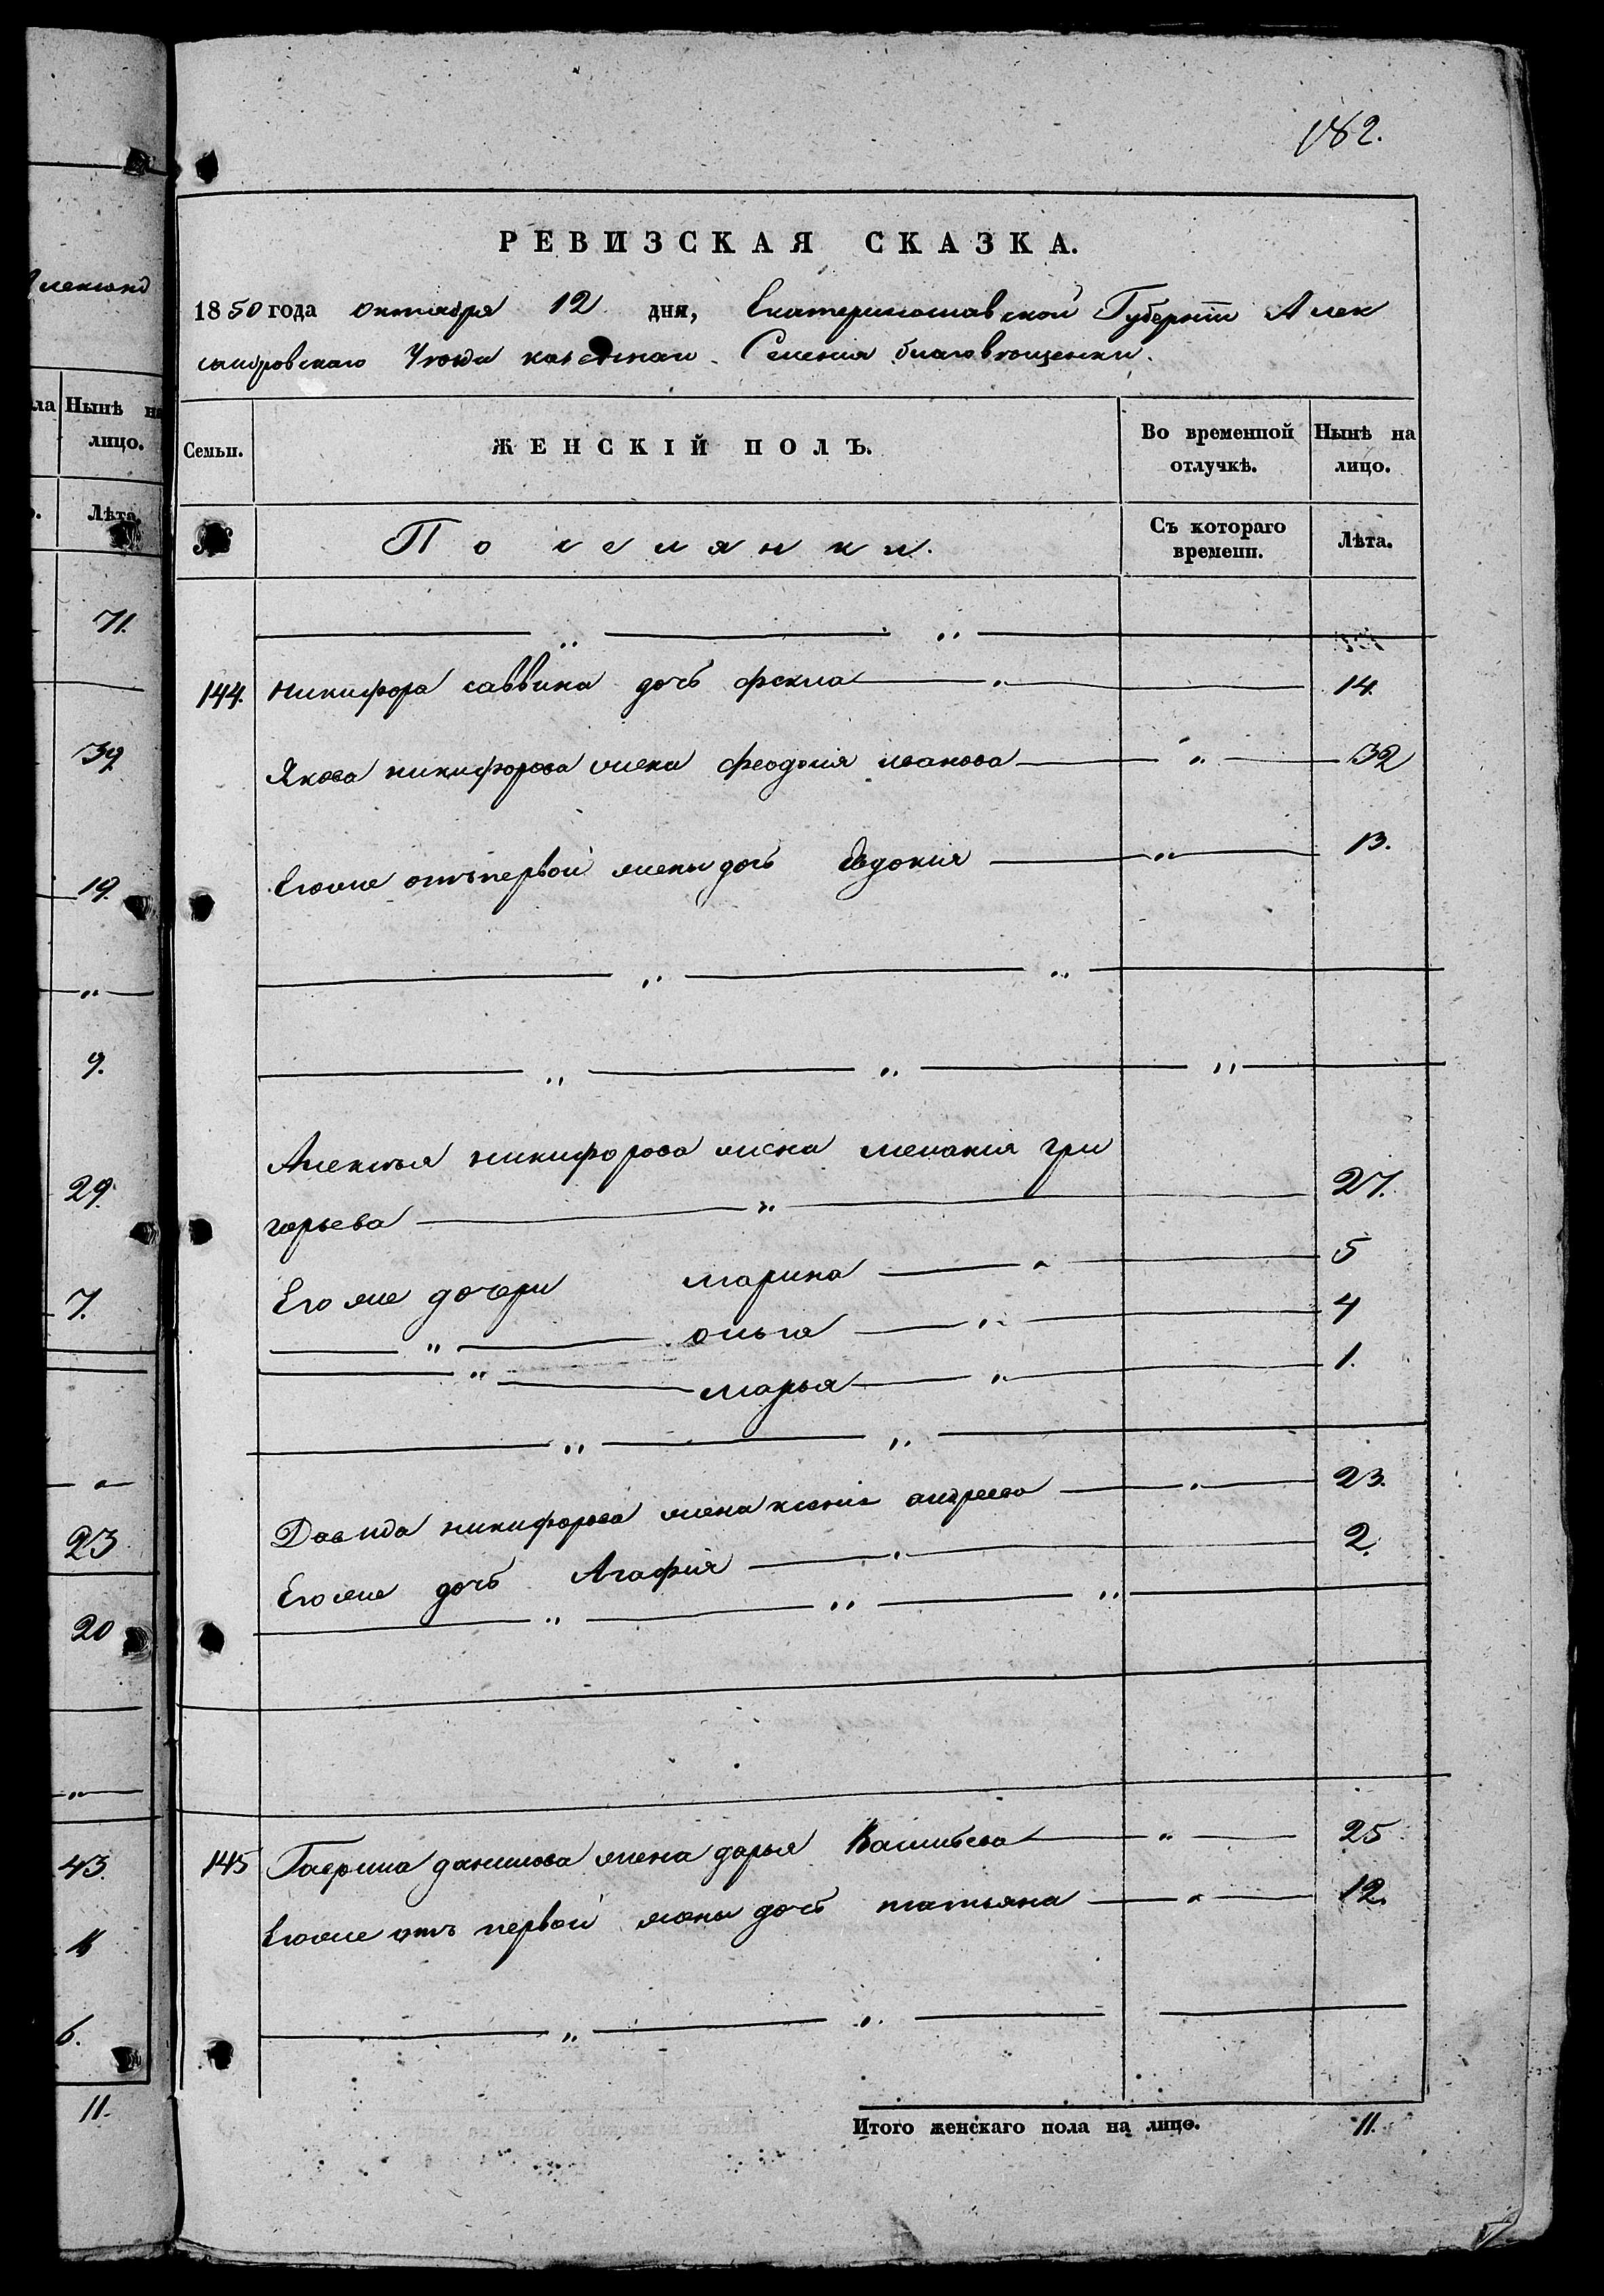 лександ
ла Нынѣ на
лицо.
Лѣта.
71.
39.
19.
9.
29.
7.
23
20
43.
6.
11.
182.
РЕВИЗСКАЯ СКАЗКА.
1850 года октября 12 дня, Екатеринославской Губерніи Алек
сандровскаго Уезда казенная Селенія благовещенки.
Семьи. ЖЕНСКІЙ ПОЛЪ. Во временной отлучкѣ. Нынѣ на лицо.
Поселянки. Съ котораго времени. Лѣта.
144. никифора саввина дочь фекла 14.
Якова никифорова жена феодосия иванова 32
Егоже отъ первой жены дочь Евдокия 13.
Алексея никифорова жена мелания гри
горьева 27.
Его же дочери марина 5
ольга 4
марья 1.
Давида никифорова жена ксения андреева 23.
Егоже дочь Агафия 2.
145 Гаврила данилова жена дарья Васильева 25
Егоже отъ первой жены дочь татьяна 12.
Итого женскаго пола на лицо. 11.